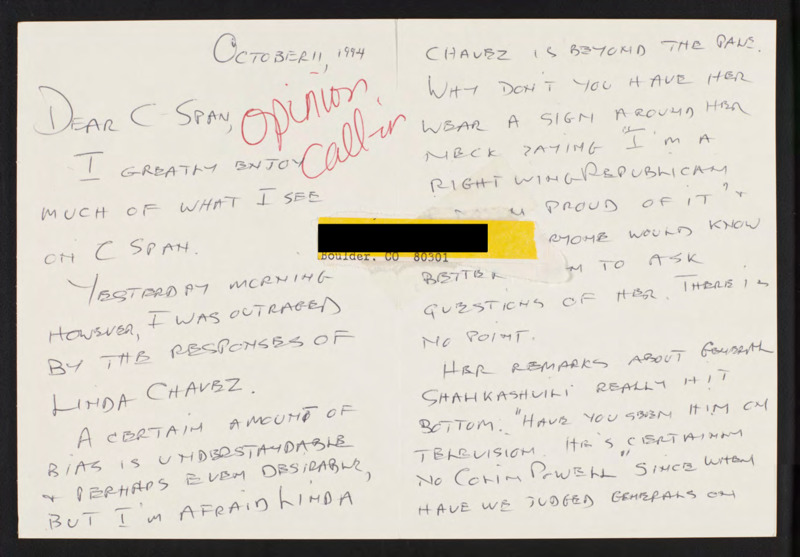 October 11, 1994
Dear C-Span,
Opinion,
Call-in
I greatly enjoy
much of what I see
on C Span.
Yesterday morning
however, I was outraged
by the responses of
Linda Chavez.
A certain amount of
bias is understandable
+ perhaps even desirable,
but I'm afraid Linda
Chavez is beyond the pale.
Why don't you have her
wear a sign around her
neck saying "I'm a
right wing Republican
proud of it" +
Boulder, CO 80301
ryone would know
better to ask
questions of her. There is
no point.
Her remarks about General
Shalikashvili really hit
bottom. "Have you seen him on
television. He's certainly
no Colin Powell" Since when
have we judged generals on